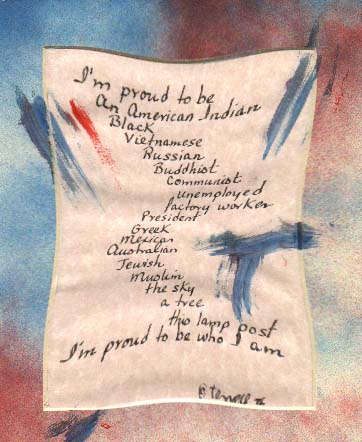 I'm proud to be
an American Indian
Black
Vietnamese
Russian
Buddhist
Communist
unemployed
factory worker
President
Greek
Mexican
Australian
Jewish
Muslim
the sky
a tree
this lamp post
I'm proud to be who I am